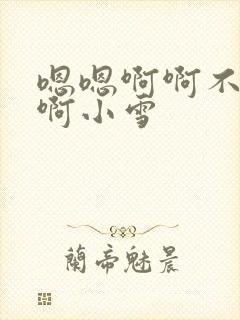 嗯嗯啊啊不
啊小雪
蘭帝魅晨